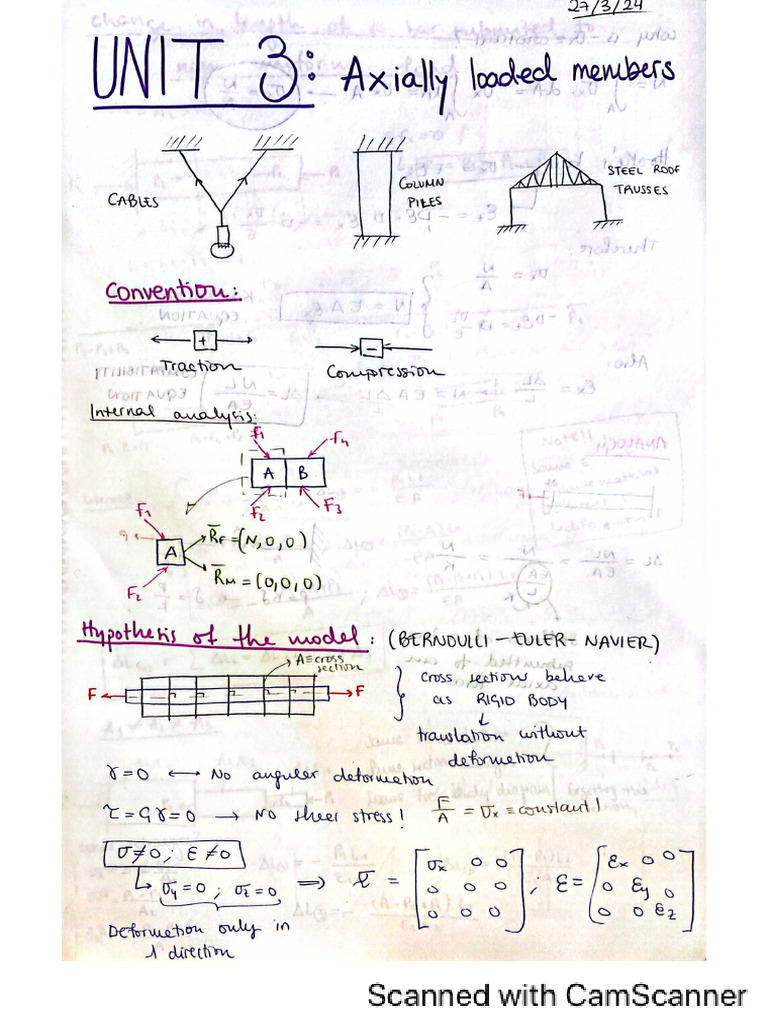 27/3/24
UNIT 3: Axially loaded members
CABLES
COLUMN
PILES
STEEL ROOF
TRUSSES
Convention:
+
-
Traction
Compression
Internal analysis:
F₁
F₄
A B
F₂
F₃
F₁
A
R̄F = (N,0,0)
R̄M = (0,0,0)
F₂
Hypothesis of the model: (BERNOULLI - EULER - NAVIER)
A ≡ cross
section
F
F
cross section behave
as RIGID BODY
↓
translation without
deformation
γ=0 ⟷ No angular deformation
τ = Gγ = 0 → No sheer stress! F/A = σx ≡ constant!
σ≠0; ε≠0
↳ σy = 0 ; σz = 0 ⇒ τ̄ = [σx 0 0; 0 0 0; 0 0 0] ; ε = [εx 0 0; 0 εy 0; 0 0 εz]
Deformation only in
1 direction
Scanned with CamScanner